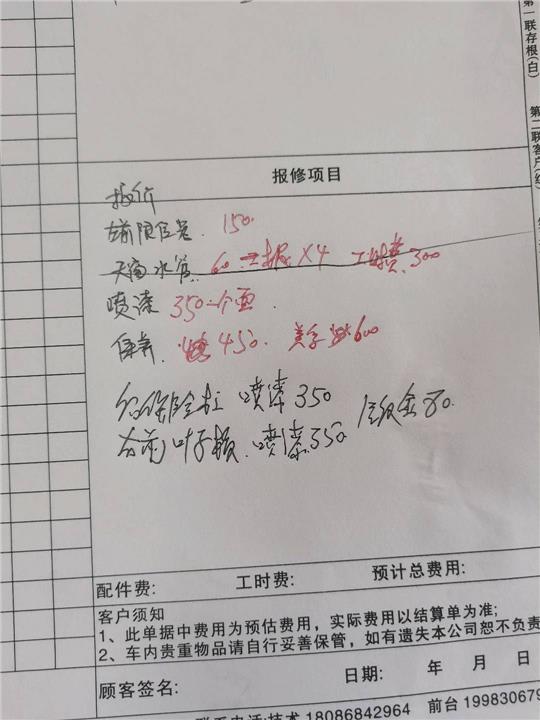 第一联存根(白)
第二联客户(红
报修项目
报价
左前限位器 150.
天窗水管 60 一根×4 工时费 300
喷漆 350一个面
保养 450. 美孚 600
喷漆350
右前叶子板 喷漆350 钣金80.
配件费: 工时费: 预计总费用:
客户须知
1、此单据中费用为预估费用，实际费用以结算单为准;
2、车内贵重物品请自行妥善保管，如有遗失本公司恕不负责
顾客签名: 日期: 年 月 日
联系电话:技术 18086842964 前台 199830679